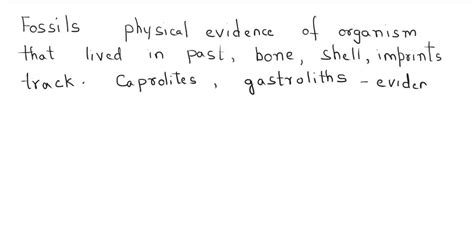 Fossils physical evidence of organism
that lived in past, bone, shell, imprints
track. Caprolites, gastroliths - eviden